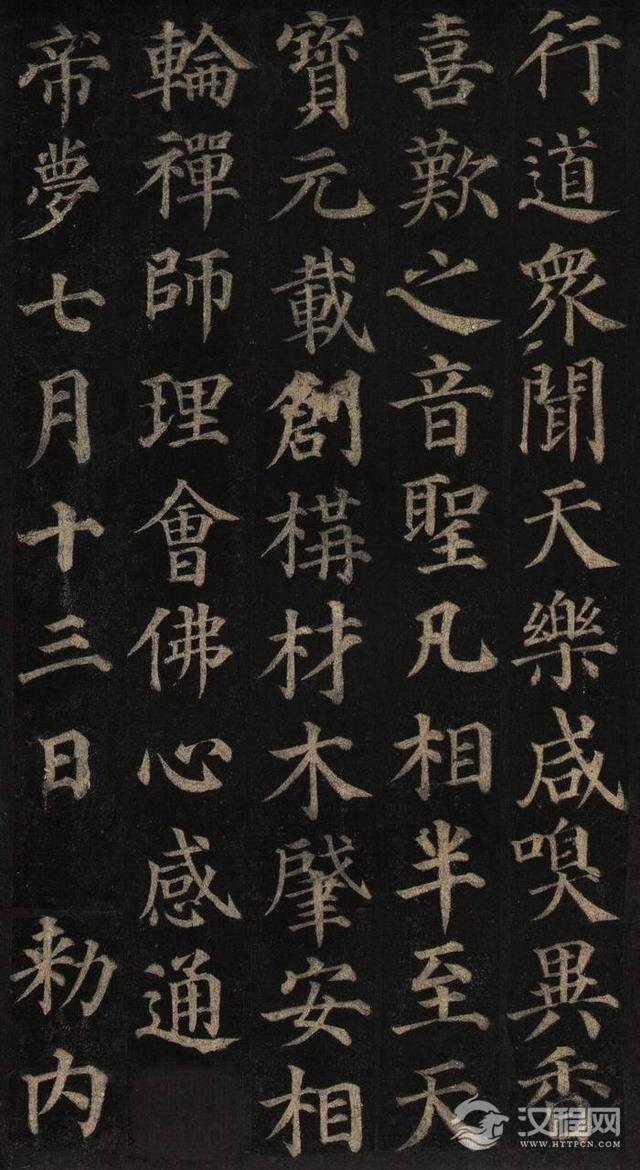 行道衆聞天樂咸嗅異香
喜歎之音聖凡相半至天
寶元載創構材木肇安相
輪禪師理會佛心感通
帝夢七月十三日 勅内
汉程网
WWW.HTTPCN.COM